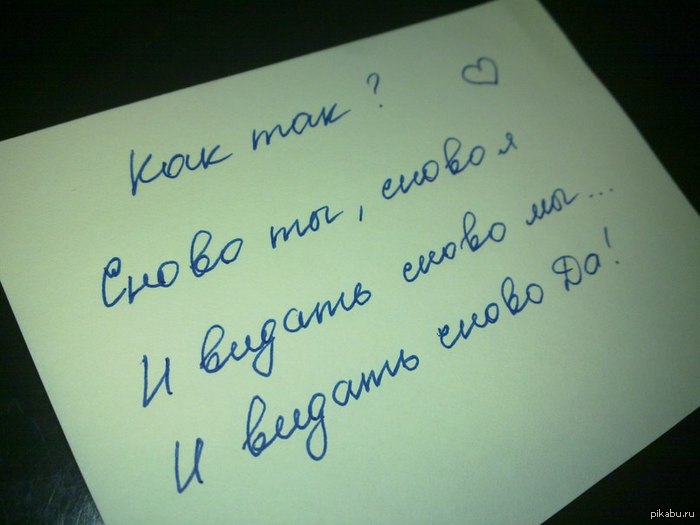 Как так? ♡
Снова ты, снова я
И видать снова мы...
И видать снова Да!
pikabu.ru